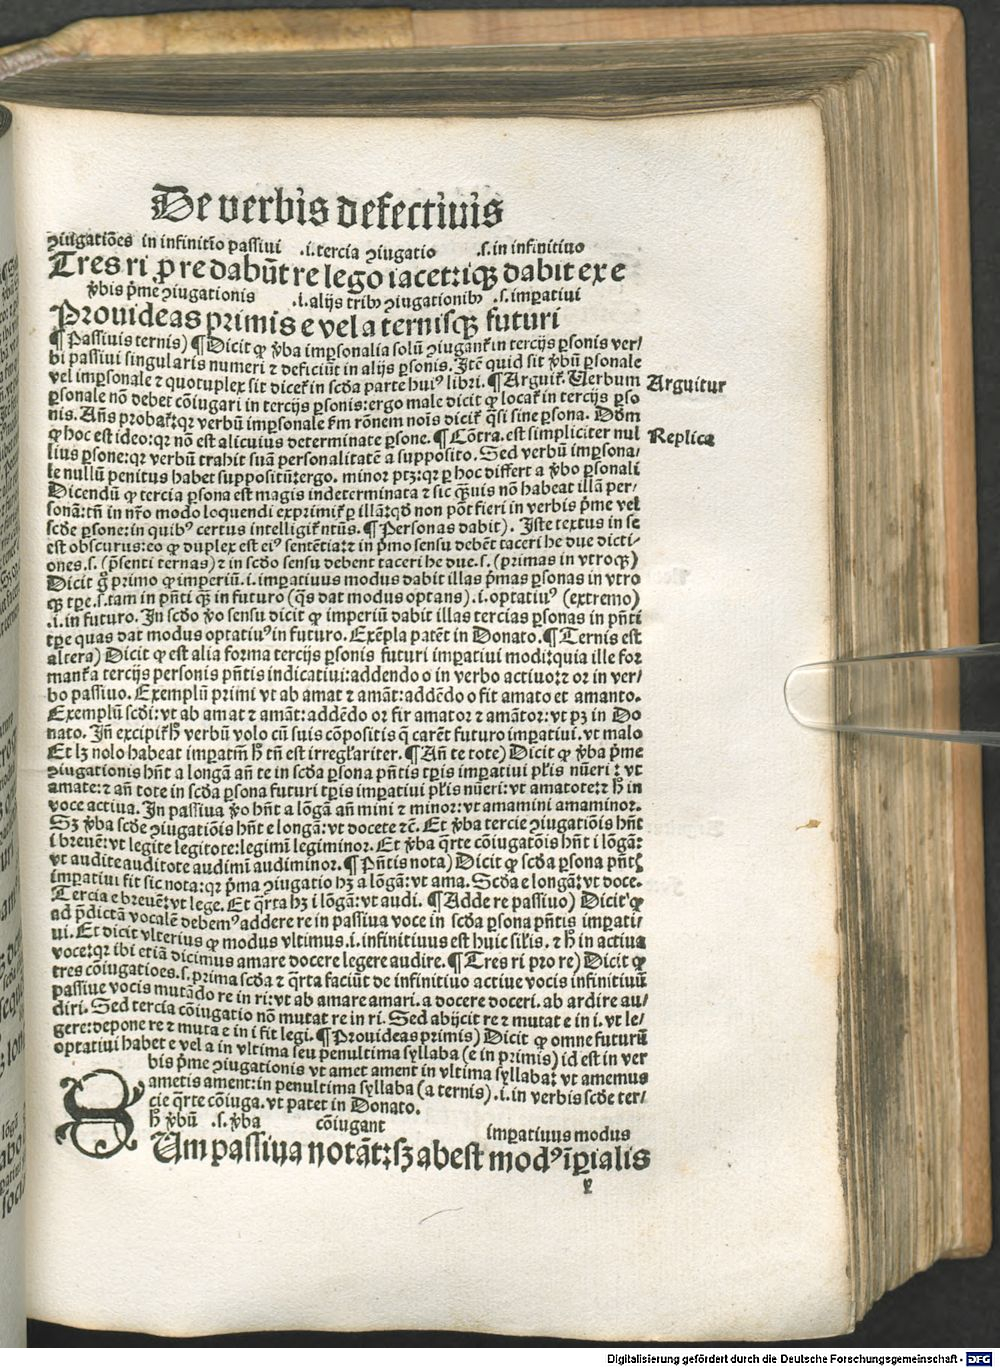 De verbis defectiuis
ꝯiugatiōes in infinitīo passiui .i. tercia ꝯiugatio .s. in infinitiuo
Tres ri ꝓ re dabūt re lego iacet: iqꝫ dabit ex e
v̓bis p̓me ꝯiugationis .i. alijs tribꝰ ꝯiugationibꝰ .s. imꝑatiui
Prouideas primis e vel a ternisqꝫ futuri
¶ Passiuis ternis) ¶ Dicit ꝙ v̓ba imꝑsonalia solū ꝯiuganť in tercijs ꝑsonis ver/
bi passiui singularis numeri ⁊ deficiūt in alijs ꝑsonis. Itē quid sit v̓bū ꝑsonale
vel imꝑsonale ⁊ quotuplex sit diceť in scďa parte huiꝰ libri. ¶ Arguiť. Verbum
ꝑsonale nō debet cōiugari in tercijs ꝑsonis: ergo male dicit ꝙ locať in tercijs ꝑso
nis. Añs probať: qr verbū imꝑsonale ẜm rōnem nois diciť q̓si sine ꝑsona. Dďm
ꝙ hoc est ideo: qr nō est alicuius determinate ꝑsone. ¶ Cōtra. est simpliciter nul
lius ꝑsone: qr verbū trahit suā personalitatē a supposito. Sed verbū imꝑsona/
le nullū penitus habet suppositū: ergo. minor ptꝫ: qr ꝑ hoc differt a v̓bo ꝑsonali
Dicendū ꝙ tercia ꝑsona est magis indeterminata ⁊ sic q̄uis nō habeat illā per/
sonā: tñ in nr̄o modo loquendi exprimiť ꝑ illā: qď non pōt fieri in verbis p̓me vel
scďe ꝑsone: in quibꝰ certus intelligiť ntūs. ¶ Personas dabit). Iste textus in se
est obscurus: eo ꝙ duplex est eiꝰ sentētia: ⁊ in p̓mo sensu debēt taceri he due dicti/
ones .s. (p̄senti ternas) ⁊ in scďo sensu debent taceri he due .s. (primas in vtroqꝫ)
Dicit g̊ primo ꝙ imperiū .i. imꝑatiuus modus dabit illas p̓mas ꝑsonas in vtro
qꝫ tꝑe .s. tam in pñti qꝫ in futuro (q̄s dat modus optans) .i. optatiuꝰ (extremo)
.i. in futuro. In scďo v̓o sensu dicit ꝙ imperiū dabit illas tercias ꝑsonas in pñti
tꝑe quas dat modus optatiuꝰ in futuro. Exēpla patēt in Donato. ¶ Ternis est
altera) Dicit ꝙ est alia forma tercijs ꝑsonis futuri imꝑatiui modi: quia ille for
manť a tercijs personis pñtis indicatiui: addendo o in verbo actiuo: ⁊ or in ver/
bo passiuo. Exemplū primi vt ab amat ⁊ amāt: addēdo o fit amato et amanto.
Exemplū scďi: vt ab amat ⁊ amāt: addēdo or fit amator ⁊ amātor: vt pꝫ in Do
nato. In̄ excipiť hͦ verbū volo cū suis cōpositis q̓ carēt futuro imꝑatiui. vt malo
Et lꝫ nolo habeat imꝑatm̄ hͦ tñ est irregl̓ariter. ¶ Añ te tote) Dicit ꝙ v̓ba p̓me
ꝯiugationis hn̄t a longā añ te in scďa ꝑsona pñtis tꝑis imꝑatiui pl̓is nūeri: vt
amate: ⁊ añ tote in scďa ꝑsona futuri tꝑis imꝑatiui pl̓is nūeri: vt amatote: ⁊ hͦ in
voce actiua. In passiua v̓o hn̄t a lōgā añ mini ⁊ minor: vt amamini amaminor.
Sꝫ v̓ba scďe ꝯiugatiōis hn̄t e longā: vt docete ⁊c̄. Et v̓ba tercie ꝯiugatiōis hn̄t
i breuē: vt legite legitote: legimī legiminor. Et v̓ba q̓rte cōiugatōis hn̄t i lōgā:
vt audite auditote audimī audiminor. ¶ Pñtis nota) Dicit ꝙ scďa ꝑsona pñtꝭ
imꝑatiui fit sic nota: qr p̓ma ꝯiugatio hꝫ a lōgā: vt ama. Scďa e longā: vt doce.
Tercia e breuē: vt lege. Et q̓rta hꝫ i lōgā: vt audi. ¶ Adde re passiuo) Dicit ꝙ
ad p̄dictā vocalē debemꝰ addere re in passiua voce in scďa ꝑsona pñtis imꝑati/
ui. Et dicit vlterius ꝙ modus vltimus .i. infinitiuus est huic sil̓is. ⁊ hͦ in actiua
voce: qr ibi etiā dicimus amare docere legere audire. ¶ Tres ri pro re) Dicit ꝙ
tres cōiugatioēs .s. prima scďa ⁊ q̓rta faciūt de infinitiuo actiue vocis infinitiuū
passiue vocis mutādo re in ri: vt ab amare amari. a docere doceri. ab ardire au/
diri. Sed tercia cōiugatio nō mutat re in ri. Sed abijcit re ⁊ mutat e in i. vt le/
gere: depone re ⁊ muta e in i fit legi. ¶ Prouideas primis) Dicit ꝙ omne futurū
optatiui habet e vel a in vltima seu penultima syllaba (e in primis) id est in ver
bis p̓me ꝯiugationis vt amet ament in vltima syllaba: vt amemus
ametis ament: in penultima syllaba (a ternis) .i. in verbis scďe ter/
cie q̓rte cōiuga. vt patet in Donato.
hͦ v̓bū .s. v̓ba cōiugant imꝑatiuus modus
SUm passiua notāt: sꝫ abest modꝰ īꝑialis
ꝩ
Arguitur
Replica
Digitalisierung gefördert durch die Deutsche Forschungsgemeinschaft - DFG